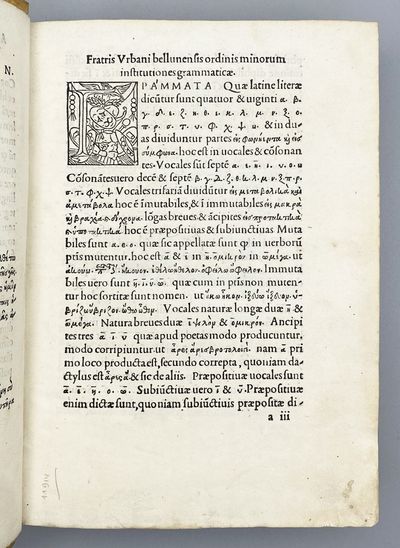 N.
Fratris Vrbani bellunensis ordinis minorum
institutiones grammaticæ.
ΓΡΑΜΜΑΤΑ Quæ latine literæ
dicūtur sunt quatuor & uiginti α. β.
γ. δ. ε. ζ. η. θ. ι. κ. λ. μ. ν. ξ. ο.
π. ρ. σ. τ. υ. φ. χ. ψ. ω. & in du-
as diuiduntur partes εἰς φωνήεντα καὶ εἰς
σύμφωνα. hoc est in uocales & cōsonan
tes. Vocales sūt septē α. ε. η. ι. ο. υ. ω
Cōsonātes uero decē & septē β. γ. δ. ζ. θ. κ. λ. μ. ν. ξ. π. ρ.
σ. τ. φ. χ. ψ. Vocales trifariā diuidūtur εἰς μεταβολικὰ καὶ
ἀμετάβολα hoc ē īmutabiles, & ī immutabiles εἰς μακρὰ
lōgas breues & ācipites
hoc ē præpositiuas & subiunctiuas Muta
biles sunt α. ε. ο. quæ sic appellatæ sunt ꝙ in uerborū
ptīs mutentur, hoc est α & ε in ut
Immuta
biles uero sunt η. ι. υ. ω. quæ cum in ptīs non muten-
tur hoc sortitæ sunt nomen. ut
Vocales naturæ longæ duæ η &
ὠμέγα. Natura breues duæ ἒ ψιλὸν & ὀμικρόν. Ancipi
tes tres α ι υ quæ apud poetas modo producuntur,
modo corripiuntur. ut nam α pri
mo loco producta est, secundo correpta, quoniam da-
ctylus est & sic de aliis. Præpositiuæ uocales sunt
α. ε. η. ο. ω. Subiūctiuæ uero ι & υ. Præpositiuæ
enim dictæ sunt, quoniam subiūctiuis præpositæ di-
a iii